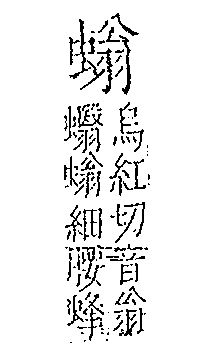 螉
烏紅切音翁
蠮螉細腰蜂